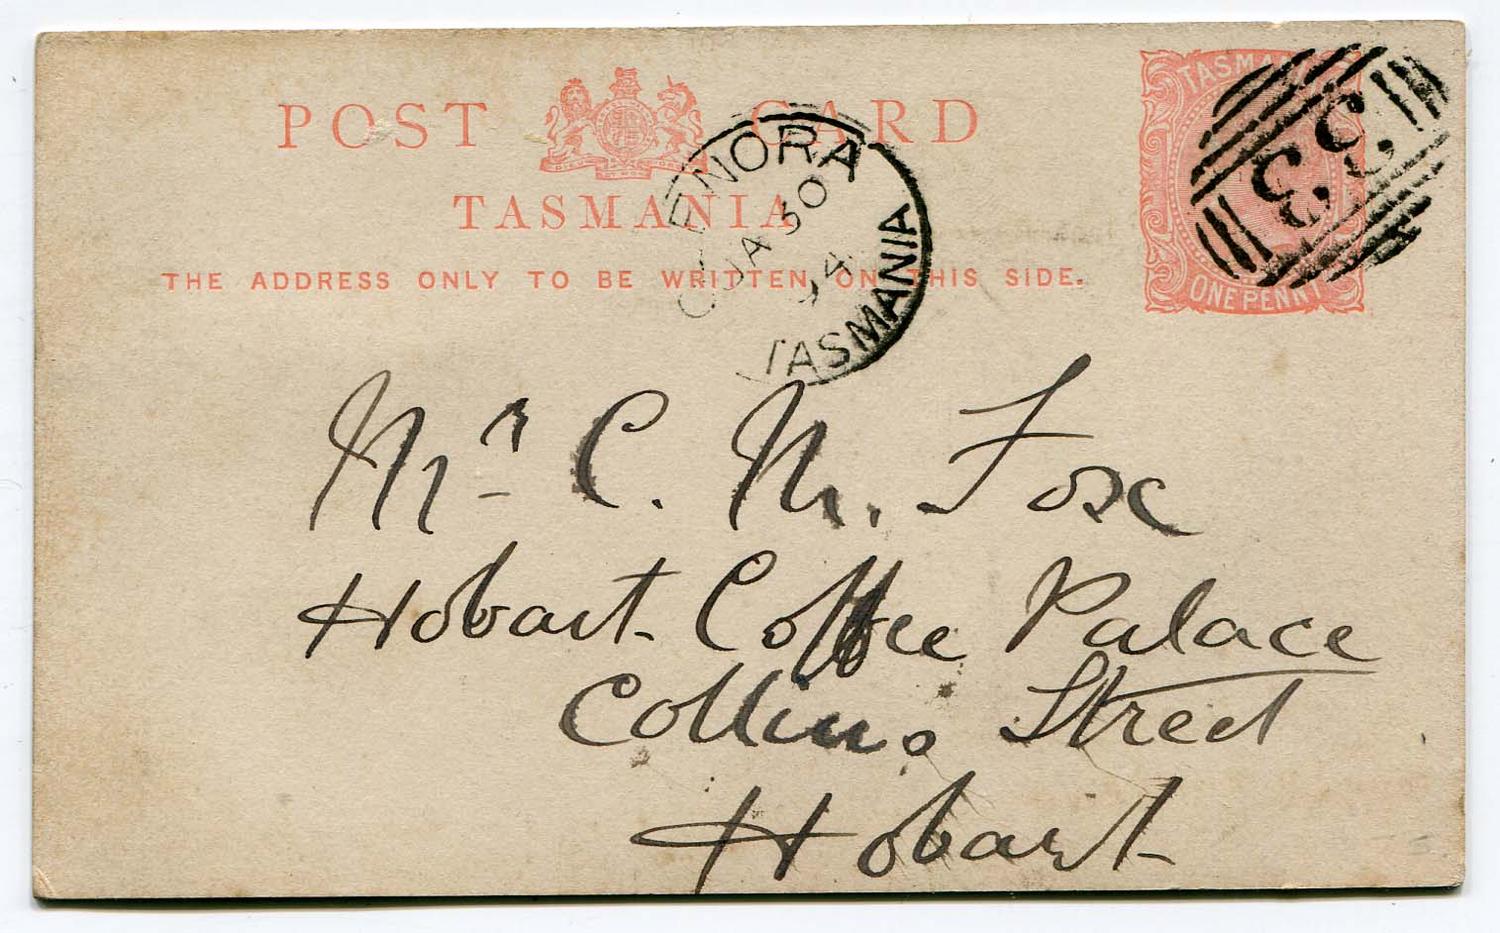 POST CARD
TASMANIA
THE ADDRESS ONLY TO BE WRITTEN ON THIS SIDE.
TASMANIA
ONE PENNY
33
GLENORA
JA 30
94
TASMANIA
Mr C. M. Fox
Hobart Coffee Palace
Collins Street
Hobart